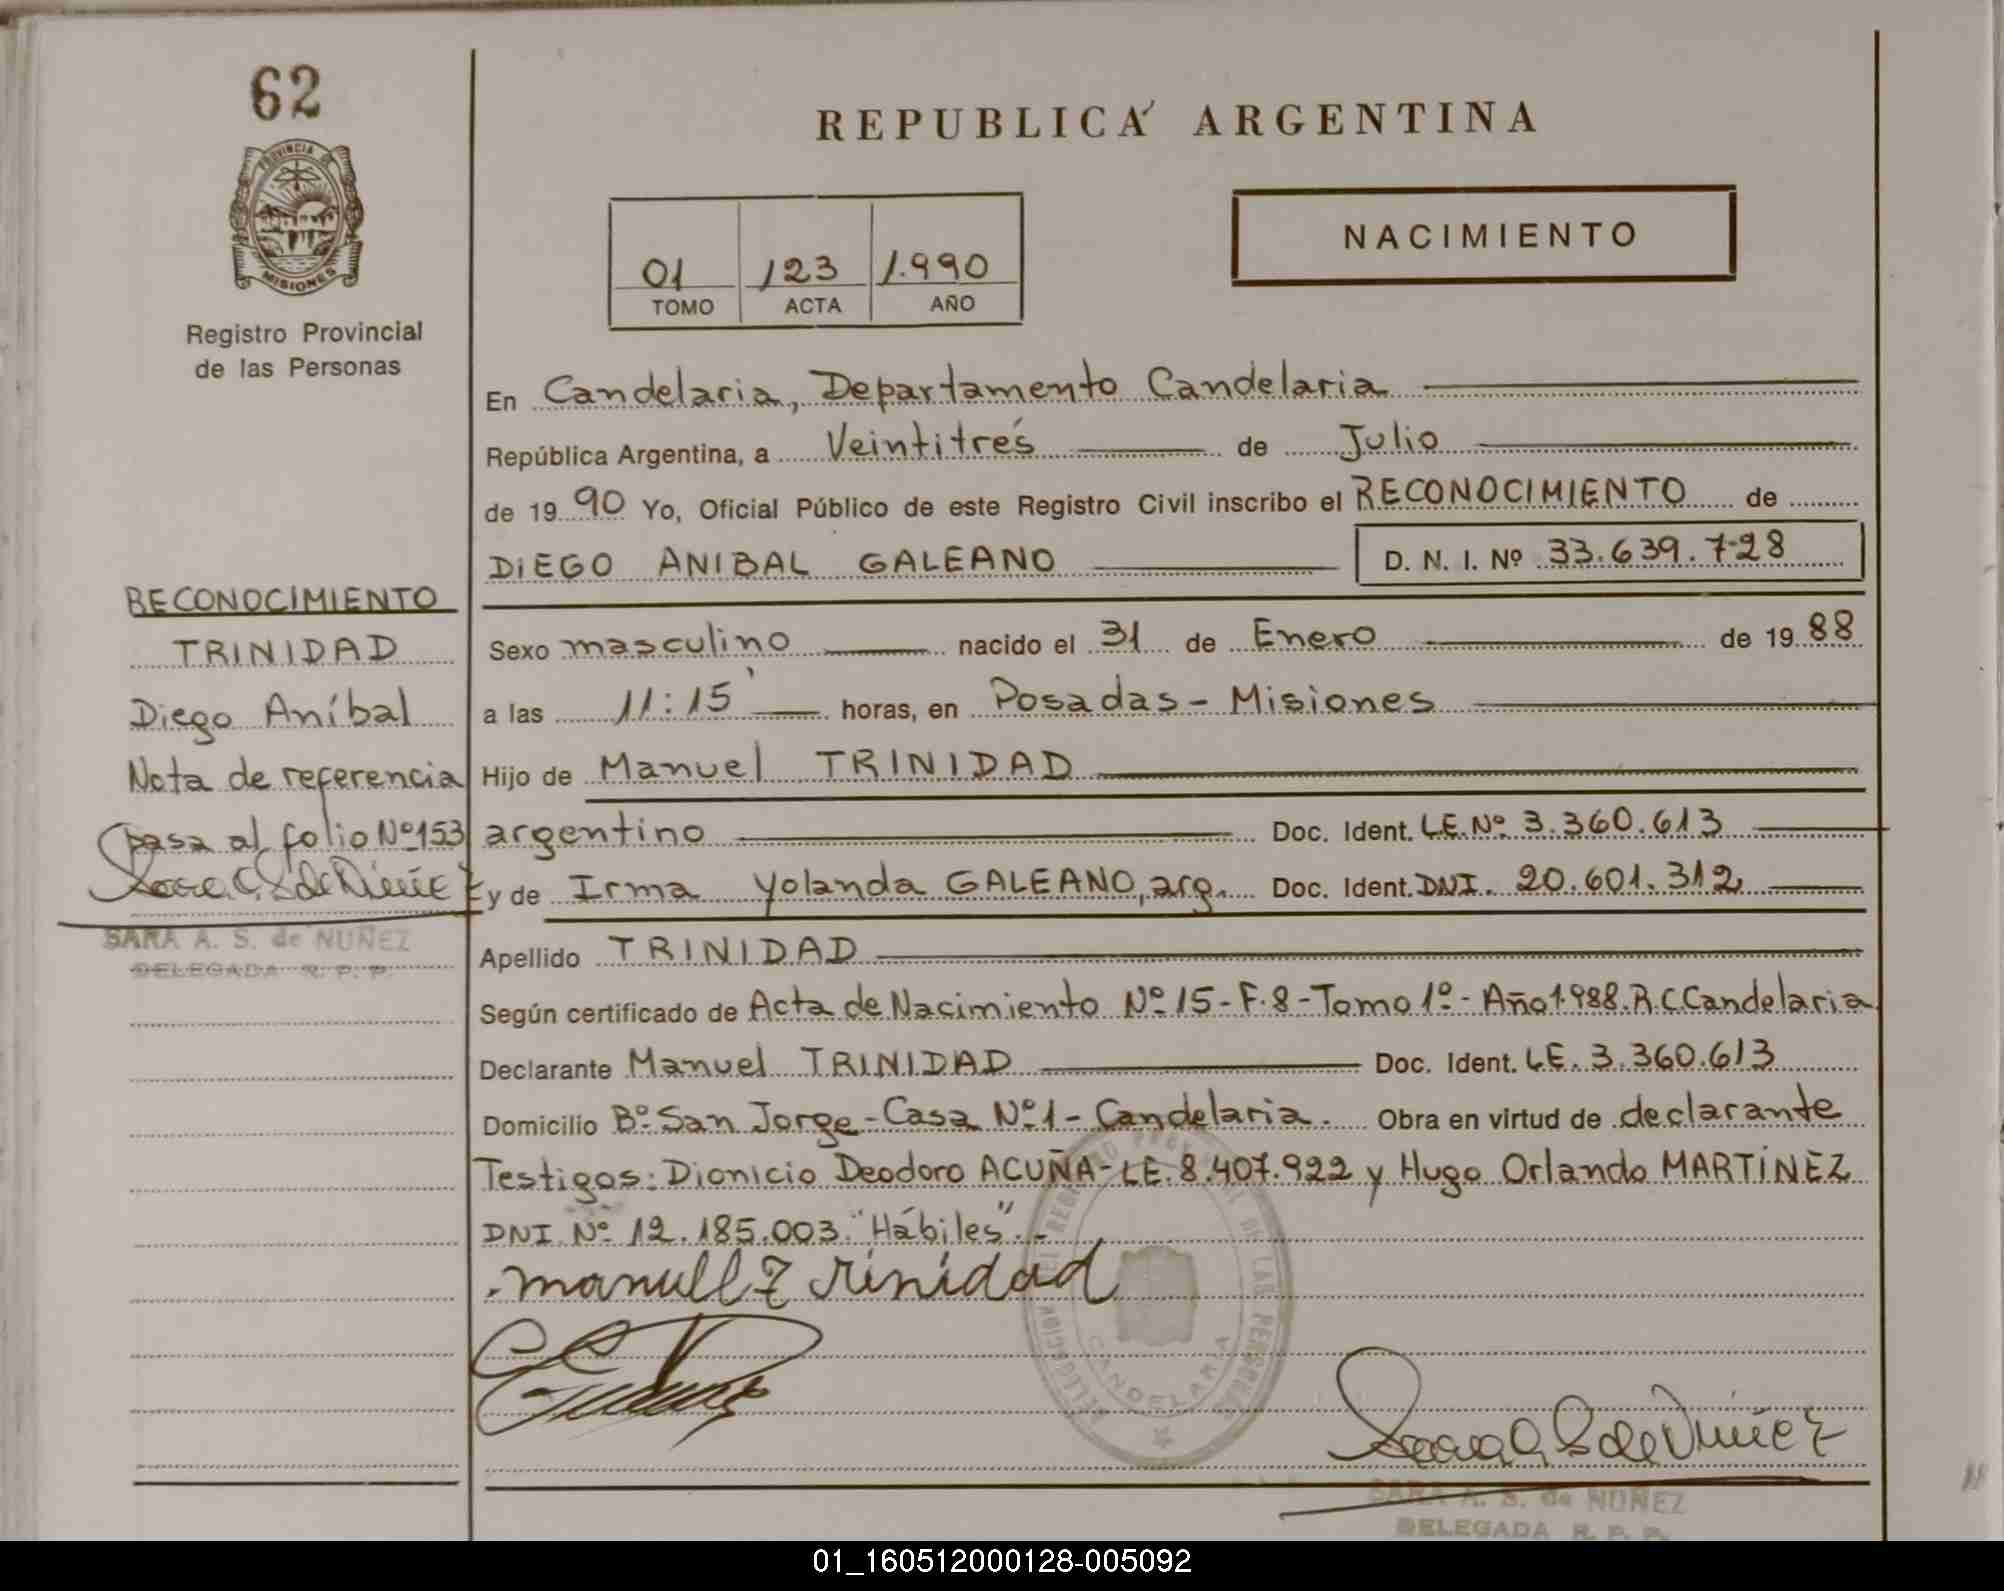 62
REPUBLICA ARGENTINA
PROVINCIA DE
MISIONES
01 123 1.990
TOMO ACTA AÑO
NACIMIENTO
Registro Provincial
de las Personas
En Candelaria, Departamento Candelaria
República Argentina, a Veintitrés de Julio
de 1990 Yo, Oficial Público de este Registro Civil inscribo el RECONOCIMIENTO de
DIEGO ANIBAL GALEANO D. N. I. Nº 33.639.728
Sexo masculino nacido el 31 de Enero de 1988
a las 11:15' horas, en Posadas - Misiones
Hijo de Manuel TRINIDAD
argentino Doc. Ident. L.E. Nº 3.360.613
y de Irma Yolanda GALEANO, arg. Doc. Ident. DNI. 20.601.312
Apellido TRINIDAD
Según certificado de Acta de Nacimiento Nº 15 - F. 8 - Tomo 1º - Año 1.988. R.C. Candelaria
Declarante Manuel TRINIDAD Doc. Ident. LE. 3.360.613
Domicilio Bº San Jorge - Casa Nº 1 - Candelaria. Obra en virtud de declarante
Testigos: Dionicio Deodoro ACUÑA - LE. 8.407.922 y Hugo Orlando MARTÍNEZ
DNI. Nº 12.185.003. "Hábiles".-
manuel Trinidad
CANDELARIA
Sara A. S. de Núñez
SARA A. S. de NUÑEZ
DELEGADA R. P. P.
RECONOCIMIENTO
TRINIDAD
Diego Aníbal
Nota de referencia
pasa al folio Nº 153
Sara A. S. de Núñez
SARA A. S. de NUÑEZ
DELEGADA R. P. P.
01_160512000128-005092